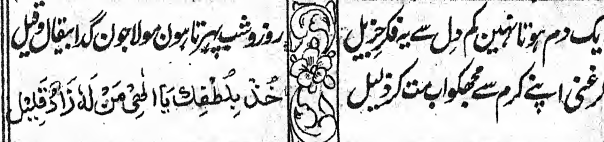 یک دم ہوتا نہین کم دل سے یہ فکر جزیل
روز و شب پہرتا ہون مولا جون گدا بیقال وقیل
کر غنی اپنے کرم سے مجھکو اب مت کر ذلیل
خُذْ بِلُطْفِكَ يَا اِلٰهِىْ مَنْ لَهٗ زَادٌ قَلِيْل